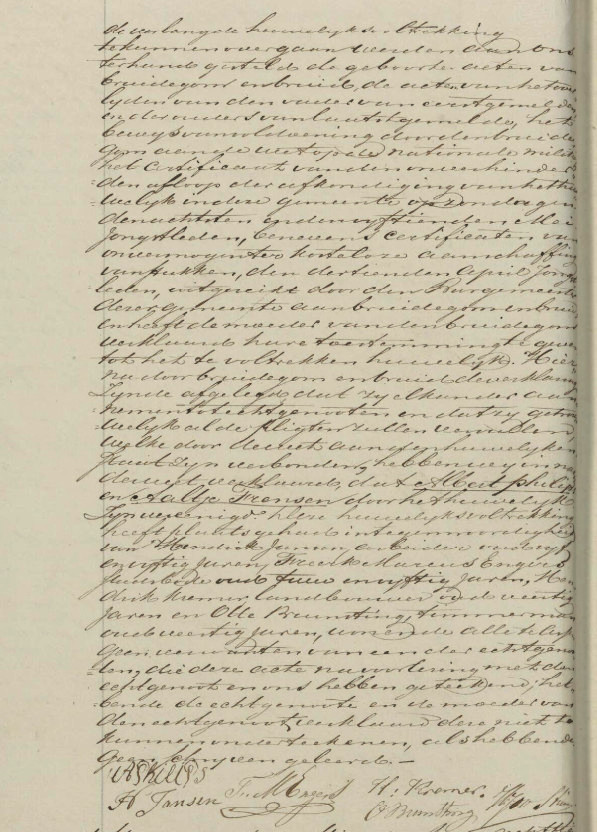 de verlangde huwelijksvoltrekking
te kunnen overgaan werden aan ons
ter hand gesteld de geboorte acten van
bruidegom en bruid, de acten van het over
lyden van den vader van eerstgemelde
en der ouders van laatstgemelde, het
bewys van voldoening door den bruide
gom aan de wet op de nationale militie
het certificaat van den onverhinder
den afloop der afkondiging van het hu
welijk in deze gemeente op zondagen
den achtsten en den vyftienden Mei
jongstleden, benevens certificaten van
onvermogen ter kostelooze aanschaffing
van stukken, den dertienden April jongst
leden, uitgereikt door den Burgemeester
dezer gemeente aan bruidegom en bruid
en heeft de moeder van den bruidegom
verklaard hare toestemming te geven
tot het te voltrekken huwelijk. Hier
na door bruidegom en bruid de verklaring
zynde afgelegd dat zy elkander aan
nemen tot echtgenooten en dat zy getrou
welyk al de pligten zullen vervullen,
welke door de wet aan den huwelyken
staat zyn verbonden, hebben wy in naam
der wet verklaard, dat Albert Philips
en Aaltje Fransen door het huwelijk
zyn vereenigd. Deze huwelyksvoltrekking
heeft plaats gehad in tegenwoordigheid
van Hendrik Jansen,
en vyftig jaren, Marcus Engers
oud twee en vyftig jaren, Hen
drik Kremer landbouwer oud veertig
jaren en Olle Brunsting, timmerman
oud veertig jaren, wonende alle te
geen verwanten van een der echtgenoo
ten, die deze acte na voorlezing met den
echtgenoot en ons hebben geteekend; heb
bende de echtgenoote en de moeder van
den echtgenoot verklaard deze niet te
kunnen onderteekenen, als hebbende
geen schryven geleerd. —
H Jansen M Engers H. Kremer.
O Brunsting